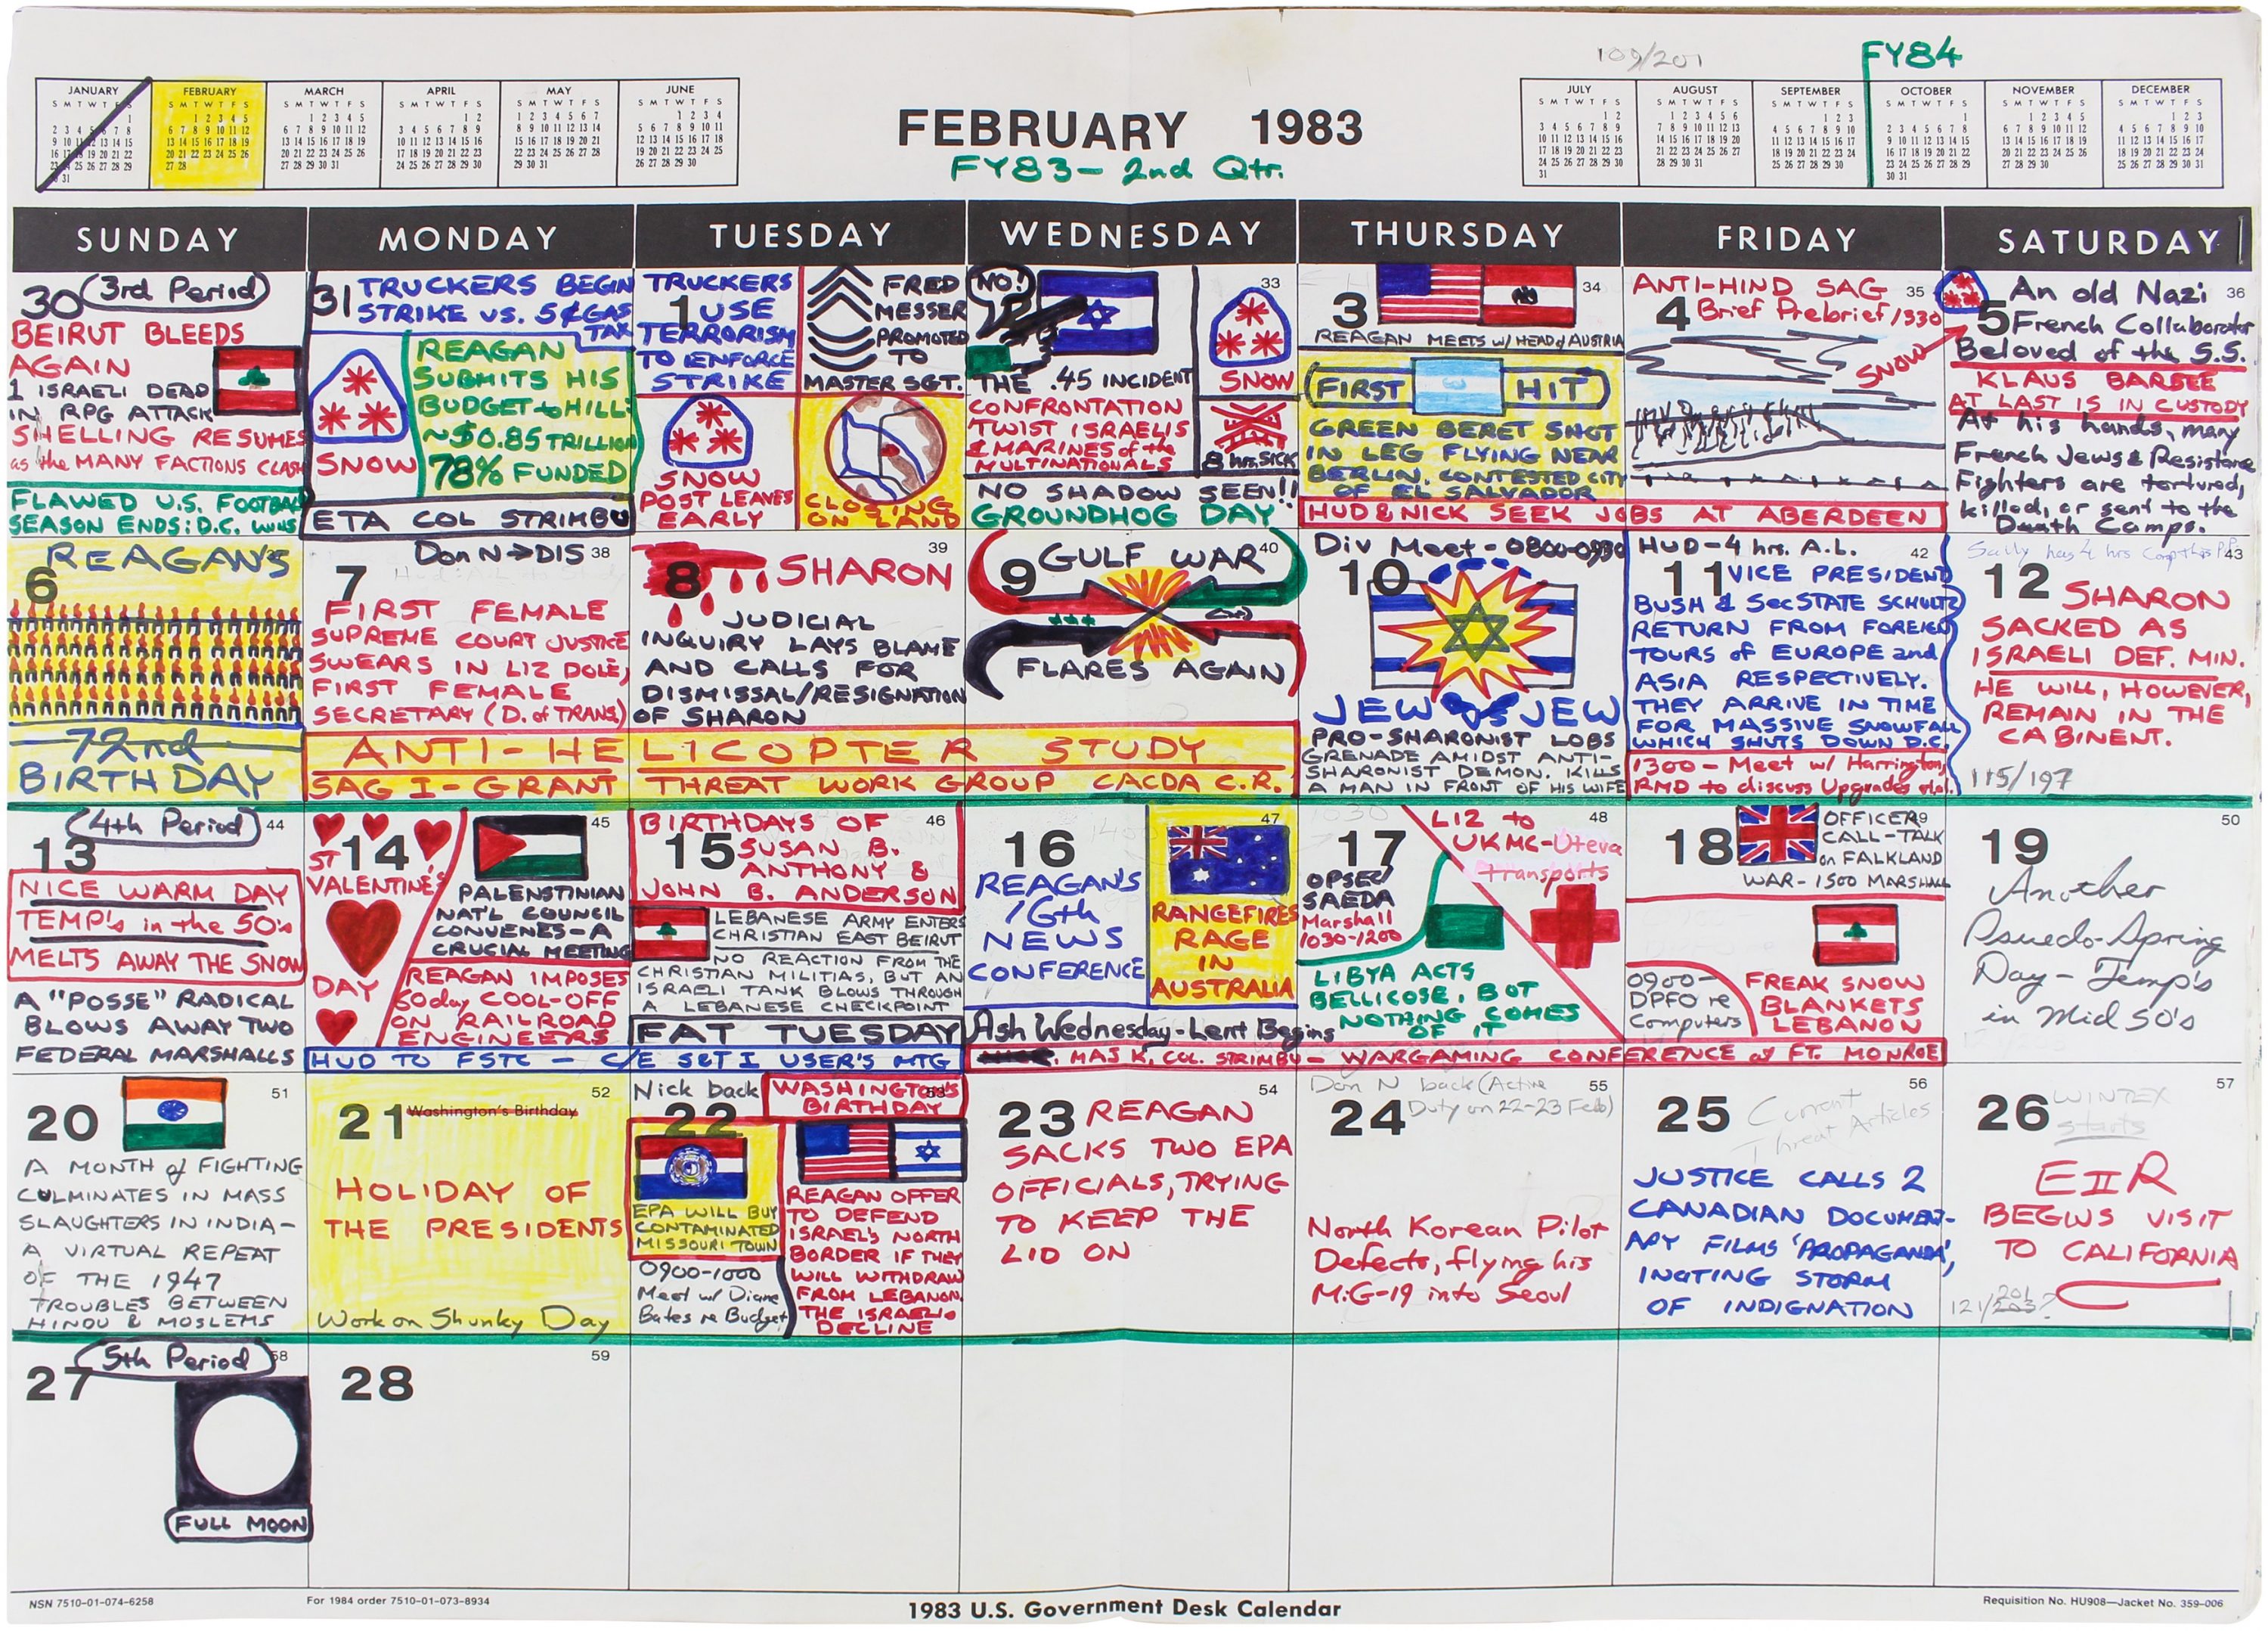 109/201
FY84
JANUARY
S M T W T F S
1
2 3 4 5 6 7 8
9 10 11 12 13 14 15
16 17 18 19 20 21 22
31
FEBRUARY
S M T W T F S
1 2 3 4 5
6 7 8 9 10 11 12
13 14 15 16 17 18 19
20 21 22 23 24 25 26
27 28
MARCH
S M T W T F S
1 2 3 4 5
6 7 8 9 10 11 12
13 14 15 16 17 18 19
20 21 22 23 24 25 26
27 28 29 30 31
APRIL
S M T W T F S
1 2
3 4 5 6 7 8 9
10 11 12 13 14 15 16
17 18 19 20 21 22 23
24 25 26 27 28 29 30
MAY
S M T W T F S
1 2 3 4 5 6 7
8 9 10 11 12 13 14
15 16 17 18 19 20 21
22 23 24 25 26 27 28
29 30 31
JUNE
S M T W T F S
1 2 3 4
5 6 7 8 9 10 11
12 13 14 15 16 17 18
19 20 21 22 23 24 25
26 27 28 29 30
FEBRUARY 1983
FY83- 2nd Qtr.
JULY
S M T W T F S
1 2
3 4 5 6 7 8 9
10 11 12 13 14 15 16
17 18 19 20 21 22 23
24 25 26 27 28 29 30
31
AUGUST
S M T W T F S
1 2 3 4 5 6
7 8 9 10 11 12 13
14 15 16 17 18 19 20
21 22 23 24 25 26 27
28 29 30 31
SEPTEMBER
S M T W T F S
1 2 3
4 5 6 7 8 9 10
11 12 13 14 15 16 17
18 19 20 21 22 23 24
25 26 27 28 29 30
OCTOBER
S M T W T F S
1
2 3 4 5 6 7 8
9 10 11 12 13 14 15
16 17 18 19 20 21 22
23 24 25 26 27 28 29
30 31
NOVEMBER
S M T W T F S
1 2 3 4 5
6 7 8 9 10 11 12
13 14 15 16 17 18 19
20 21 22 23 24 25 26
27 28 29 30
DECEMBER
S M T W T F S
1 2 3
4 5 6 7 8 9 10
11 12 13 14 15 16 17
18 19 20 21 22 23 24
25 26 27 28 29 30 31
SUNDAY MONDAY TUESDAY WEDNESDAY THURSDAY FRIDAY SATURDAY
30 (3rd Period)
BEIRUT BLEEDS
AGAIN
1 ISRAELI DEAD
IN RPG ATTACK
SHELLING RESUMES
as the MANY FACTIONS CLASH
FLAWED U.S. FOOTBALL
SEASON ENDS: D.C. WINS
31 TRUCKERS BEGIN
STRIKE VS. 5¢ GAS
TAX
SNOW
REAGAN
SUBMITS HIS
BUDGET to HILL:
~$0.85 TRILLION
78% FUNDED
ETA COL STRIMBU
TRUCKERS
1 USE
TERRORISM
TO ENFORCE
STRIKE
SNOW
POST LEAVES
EARLY
FRED
MESSER
PROMOTED
TO
MASTER SGT.
CLOSING
ON LAND
NO!
THE .45 INCIDENT
CONFRONTATION
TWIXT ISRAELIS
& MARINES of the
MULTINATIONALS
33
SNOW
8 hrs. SICK
NO SHADOW SEEN!!
GROUNDHOG DAY
3
34
REAGAN MEETS w/ HEAD of AUSTRIA
FIRST HIT
GREEN BERET SHOT
IN LEG FLYING NEAR
BERLIN, CONTESTED CITY
OF EL SALVADOR
HUD & NICK SEEK JOBS AT ABERDEEN
ANTI-HIND SAG 35
4 Brief Prebrief/1330
SNOW
An old Nazi 36
5 French Collaborator
Beloved of the S.S.
KLAUS BARBEE
AT LAST IS IN CUSTODY
At his hands, many
French Jews & Resistance
Fighters are tortured,
killed, or sent to the
Death Camps.
REAGAN'S
6
72nd
BIRTHDAY
Don N→DIS 38
7
FIRST FEMALE
SUPREME COURT JUSTICE
SWEARS IN LIZ DOLE,
FIRST FEMALE
SECRETARY (D. of TRANS)
39
8 SHARON
JUDICIAL
INQUIRY LAYS BLAME
AND CALLS FOR
DISMISSAL/RESIGNATION
OF SHARON
9 GULF WAR 40
FLARES AGAIN
ANTI-HELICOPTER STUDY
SAG I-GRANT THREAT WORK GROUP CACDA C.R.
Div Meet-0800-0930
10
JEW vs JEW
PRO-SHARONIST LOBS
GRENADE AMIDST ANTI-
SHARONIST DEMON. KILLS
A MAN IN FRONT OF HIS WIFE
HUD-4 hrs. A.L. 42
11 VICE PRESIDENT
BUSH & SecSTATE SCHULTZ
RETURN FROM FOREIGN
TOURS of EUROPE and
ASIA RESPECTIVELY.
THEY ARRIVE IN TIME
FOR MASSIVE SNOWFALL
WHICH SHUTS DOWN D.C.
1300- Meet w/ Harrington,
RMD to discuss Upgrades
43
12 SHARON
SACKED AS
ISRAELI DEF. MIN.
HE WILL, HOWEVER,
REMAIN IN THE
CABINENT.
115/197
(4th Period) 44
13
NICE WARM DAY
TEMP's in the 50's
MELTS AWAY THE SNOW
A "POSSE" RADICAL
BLOWS AWAY TWO
FEDERAL MARSHALLS
45
14
ST
VALENTINE'S
DAY
PALENSTINIAN
NAT'L COUNCIL
CONVENES-A
CRUCIAL MEETING
REAGAN IMPOSES
60 day COOL-OFF
ON RAILROAD
ENGINEERS
BIRTHDAYS OF 46
15 SUSAN B.
ANTHONY &
JOHN B. ANDERSON
LEBANESE ARMY ENTERS
CHRISTIAN EAST BEIRUT
NO REACTION FROM THE
CHRISTIAN MILITIAS, BUT AN
ISRAELI TANK BLOWS THROUGH
A LEBANESE CHECKPOINT
FAT TUESDAY
HUD TO FSTC - C/E S&T I USER'S MTG
47
16
REAGAN'S
16th
NEWS
CONFERENCE
RANGEFIRES
RAGE
IN
AUSTRALIA
Ash Wednesday-Lent Begins
MAJ K, COL. STRIMBU- WARGAMING CONFERENCE at FT. MONROE
1030
17
48
LIZ to
UKMC-Uteva
transports
OPSEC/
SAEDA
Marshall
1030-1200
LIBYA ACTS
BELLICOSE, BUT
NOTHING COMES
OF IT
18
49
OFFICER
CALL-TALK
on FALKLAND
WAR-1500 MARSHALL
0900-
DPFO re
Computers
FREAK SNOW
BLANKETS
LEBANON
50
19
Another
Psuedo-Spring
Day- Temp's
in Mid 50's
51
20
A MONTH of FIGHTING
CULMINATES IN MASS
SLAUGHTERS IN INDIA-
A VIRTUAL REPEAT
OF THE 1947
TROUBLES BETWEEN
HINDU & MOSLEMS
52
21 Washington's Birthday
HOLIDAY OF
THE PRESIDENTS
Work on Shunky Day
Nick back
53
WASHINGTON'S
BIRTHDAY
22
EPA WILL BUY
CONTAMINATED
MISSOURI TOWN
0900-1000
Meet w/ Diane
Bates re Budget
REAGAN OFFER
TO DEFEND
ISRAEL'S NORTH
BORDER IF THEY
WILL WITHDRAW
FROM LEBANON.
THE ISRAELIS
DECLINE
54
23 REAGAN
SACKS TWO EPA
OFFICIALS, TRYING
TO KEEP THE
LID ON
Don N back (Active 55
24 Duty on 22-23 Feb)
North Korean Pilot
Defects, flying his
MiG-19 into Seoul
56
25 Current
Threat Articles
JUSTICE CALLS 2
CANADIAN DOCUMENT-
ARY FILMS 'PROPAGANDA',
INCITING STORM
OF INDIGNATION
57
26 WINTEX
starts
EIIR
BEGINS VISIT
TO CALIFORNIA
(5th Period) 58
27
FULL MOON
59
28
NSN 7510-01-074-6258
For 1984 order 7510-01-073-8934
1983 U.S. Government Desk Calendar
Requisition No. HU908—Jacket No. 359-006